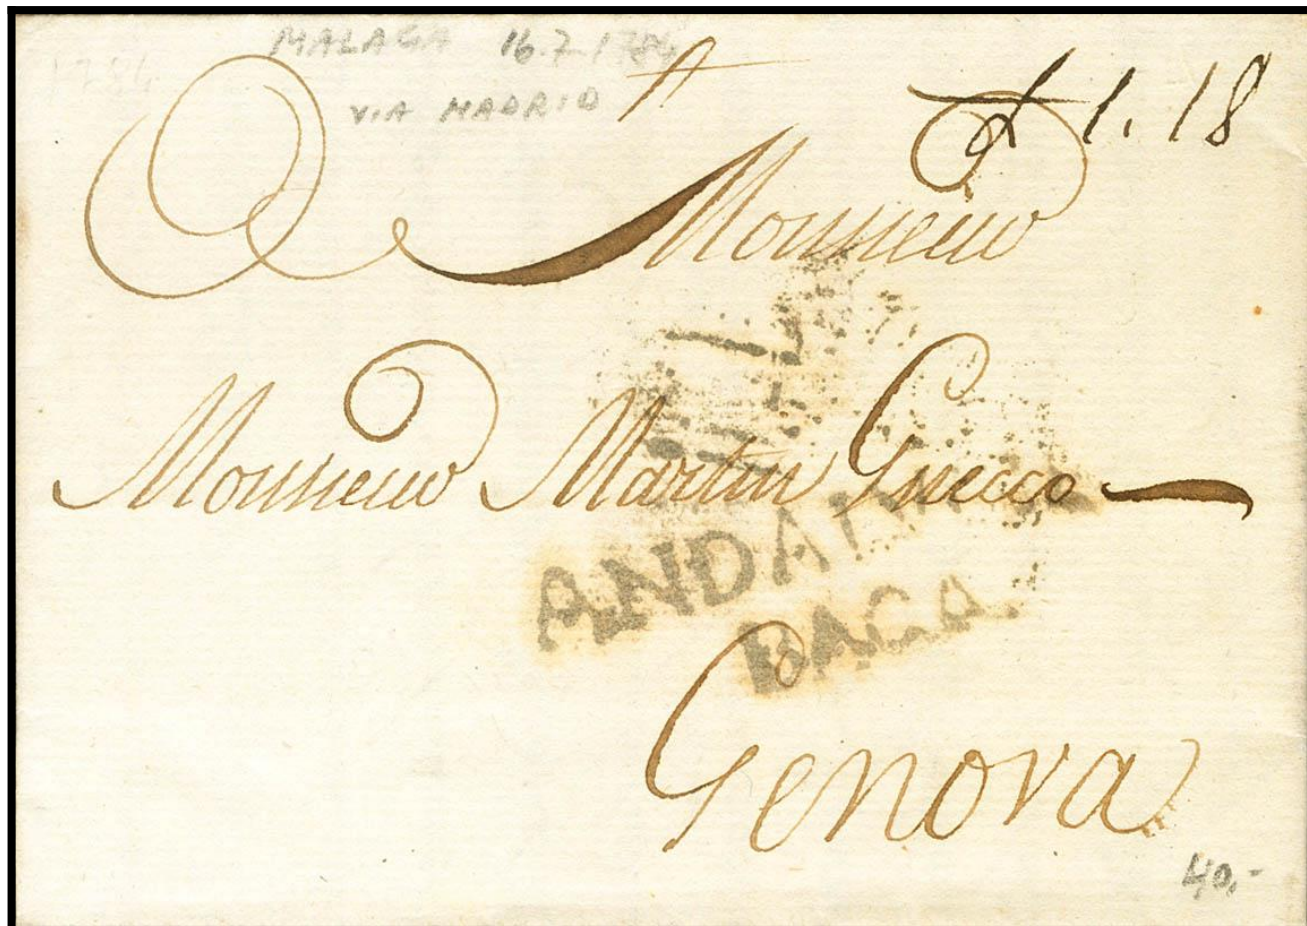 MALAGA 16.7.1784
1784
VIA MADRID
£ 1.18
A Monsieur
Monsieur Martin Gnecco
ANDALUCIA
BAGA.
Genova
40,-